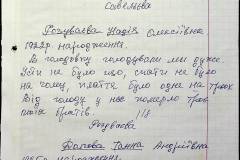 Савельєва
Розуваєва Надія Олексіївна
1922р. народження.
В голодовку голодували ми дуже.
Їсти не було що, спати не було
на чому, плаття було одне на трьох
Від голоду у нас померло троє
моїх братів.
Розуваєва
Ганна Андріївна
народження